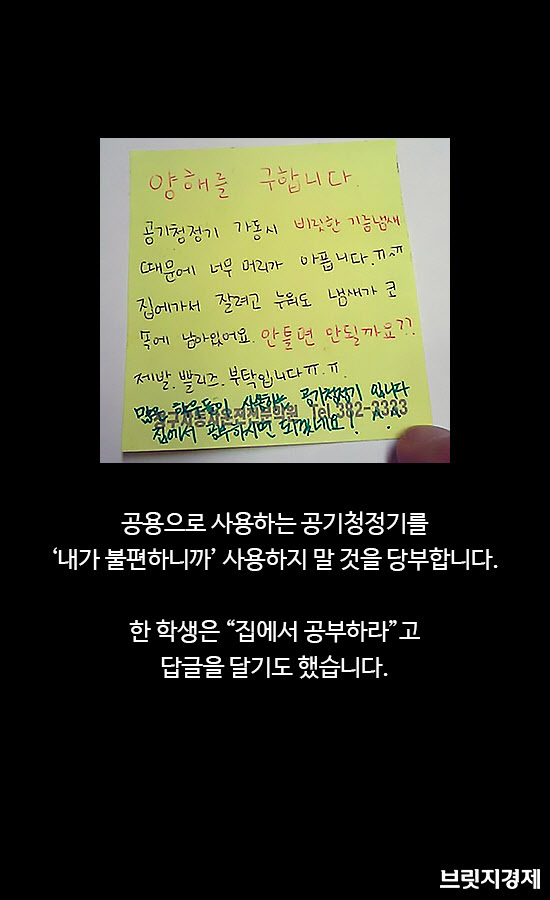 양해를 구합니다.
공기청정기 가동시 비릿한 기름냄새
때문에 너무 머리가 아픕니다.ㅠ.ㅠ
집에가서 잘려고 누워도 냄새가 코
속에 남아있어요. 안틀면 안될까요??
제발. 쁠리즈. 부탁입니다ㅠ.ㅠ.
많은 학우들이 사용하는 공기청정기 입니다
집에서 공부하시면 되겠네요!
자동차운전전문학원 Tel.382-3323
공용으로 사용하는 공기청정기를
‘내가 불편하니까’ 사용하지 말 것을 당부합니다.
한 학생은 “집에서 공부하라”고
답글을 달기도 했습니다.
브릿지경제